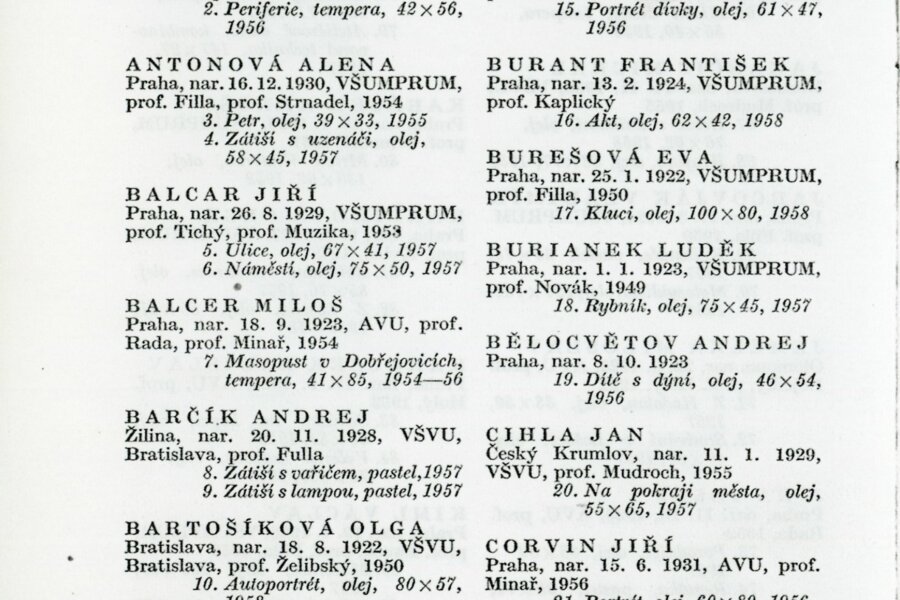 2. Periferie, tempera, 42×56,
1956
ANTONOVÁ ALENA
Praha, nar. 16. 12. 1930, VŠUMPRUM,
prof. Filla, prof. Strnadel, 1954
3. Petr, olej, 39×33, 1955
4. Zátiší s uzenáči, olej,
58×45, 1957
BALCAR JIŘÍ
Praha, nar. 26. 8. 1929, VŠUMPRUM,
prof. Tichý, prof. Muzika, 1953
5. Ulice, olej, 67×41, 1957
6. Náměstí, olej, 75×50, 1957
BALCER MILOŠ
Praha, nar. 18. 9. 1923, AVU, prof.
Rada, prof. Minař, 1954
7. Masopust v Dobřejovicích,
tempera, 41×85, 1954—56
BARČÍK ANDREJ
Žilina, nar. 20. 11. 1928, VŠVU,
Bratislava, prof. Fulla
8. Zátiší s vařičem, pastel, 1957
9. Zátiší s lampou, pastel, 1957
BARTOŠÍKOVÁ OLGA
Bratislava, nar. 18. 8. 1922, VŠVU,
Bratislava, prof. Želibský, 1950
10. Autoportrét, olej, 80×57,
1958
15. Portrét dívky, olej, 61×47,
1956
BURANT FRANTIŠEK
Praha, nar. 13. 2. 1924, VŠUMPRUM,
prof. Kaplický
16. Akt, olej, 62×42, 1958
BUREŠOVÁ EVA
Praha, nar. 25. 1. 1922, VŠUMPRUM,
prof. Filla, 1950
17. Kluci, olej, 100×80, 1958
BURIANEK LUDĚK
Praha, nar. 1. 1. 1923, VŠUMPRUM,
prof. Novák, 1949
18. Rybník, olej, 75×45, 1957
BĚLOCVĚTOV ANDREJ
Praha, nar. 8. 10. 1923
19. Dítě s dýní, olej, 46×54,
1956
CIHLA JAN
Český Krumlov, nar. 11. 1. 1929,
VŠVU, prof. Mudroch, 1955
20. Na pokraji města, olej,
55×65, 1957
CORVIN JIŘÍ
Praha, nar. 15. 6. 1931, AVU, prof.
Minař, 1956
21. Portrét, olej, 60×80, 1956